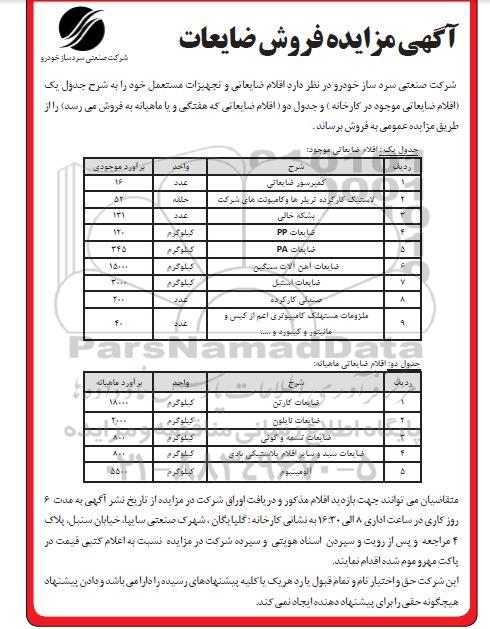 آگهی مزایده فروش ضایعات
شرکت صنعتی سردساز خودرو
شرکت صنعتی سرد ساز خودرو در نظر دارد اقلام ضایعاتی و تجهیزات مستعمل خود را به شرح جدول یک
(اقلام ضایعاتی موجود در کارخانه) و جدول دو (اقلام ضایعاتی که هفتگی و یا ماهیانه به فروش می رسد) را از
طریق مزایده عمومی به فروش برساند.
جدول یک: اقلام ضایعاتی موجود:
ردیف شرح واحد برآورد موجودی
۱ کمپرسور ضایعاتی عدد ۱۶
۲ لاستیک کارکرده تریلر ها و کامیونت های شرکت حلقه ۵۲
۳ بشکه خالی عدد ۱۳۱
۴ ضایعات PP کیلوگرم ۱۲۰
۵ ضایعات PA کیلوگرم ۳۴۵
۶ ضایعات آهن آلات سنگین کیلوگرم ۱۵۰۰۰
۷ ضایعات استیل کیلوگرم ۳۰۰۰
۸ صندلی کارکرده عدد ۲۰۰
۹ ملزومات مستهلک کامپیوتری اعم از کیس و
مانیتور و کیبورد و ..... عدد ۴۰
ParsNamadData
جدول دو: اقلام ضایعاتی ماهیانه:
ردیف شرح واحد برآورد ماهیانه
۱ ضایعات کارتن کیلوگرم ۱۸۰۰۰
۲ ضایعات نایلون کیلوگرم ۲۰۰۰
۳ ضایعات تسمه و گونی کیلوگرم ۸۰۰
۴ ضایعات سبد و سایر اقلام پلاستیکی بادی کیلوگرم ۸۰۰
۵ آلومینیوم کیلوگرم ۵۵۰۰
متقاضیان می توانند جهت بازدید اقلام مذکور و دریافت اوراق شرکت در مزایده از تاریخ نشر آگهی به مدت ۶
روز کاری در ساعت اداری ۸ الی ۱۶:۳۰ به نشانی کارخانه: گلپایگان، شهرک صنعتی سایپا، خیابان سنبل، پلاک
۴ مراجعه و پس از رویت و سپردن اسناد هویتی و سپرده شرکت در مزایده نسبت به اعلام کتبی قیمت در
پاکت مهر و موم شده اقدام نمایند.
این شرکت حق و اختیار تام و تمام قبول یا رد هر یک یا کلیه پیشنهادهای رسیده را دارا می باشد و دادن پیشنهاد
هیچگونه حقی را برای پیشنهاد دهنده ایجاد نمی کند.